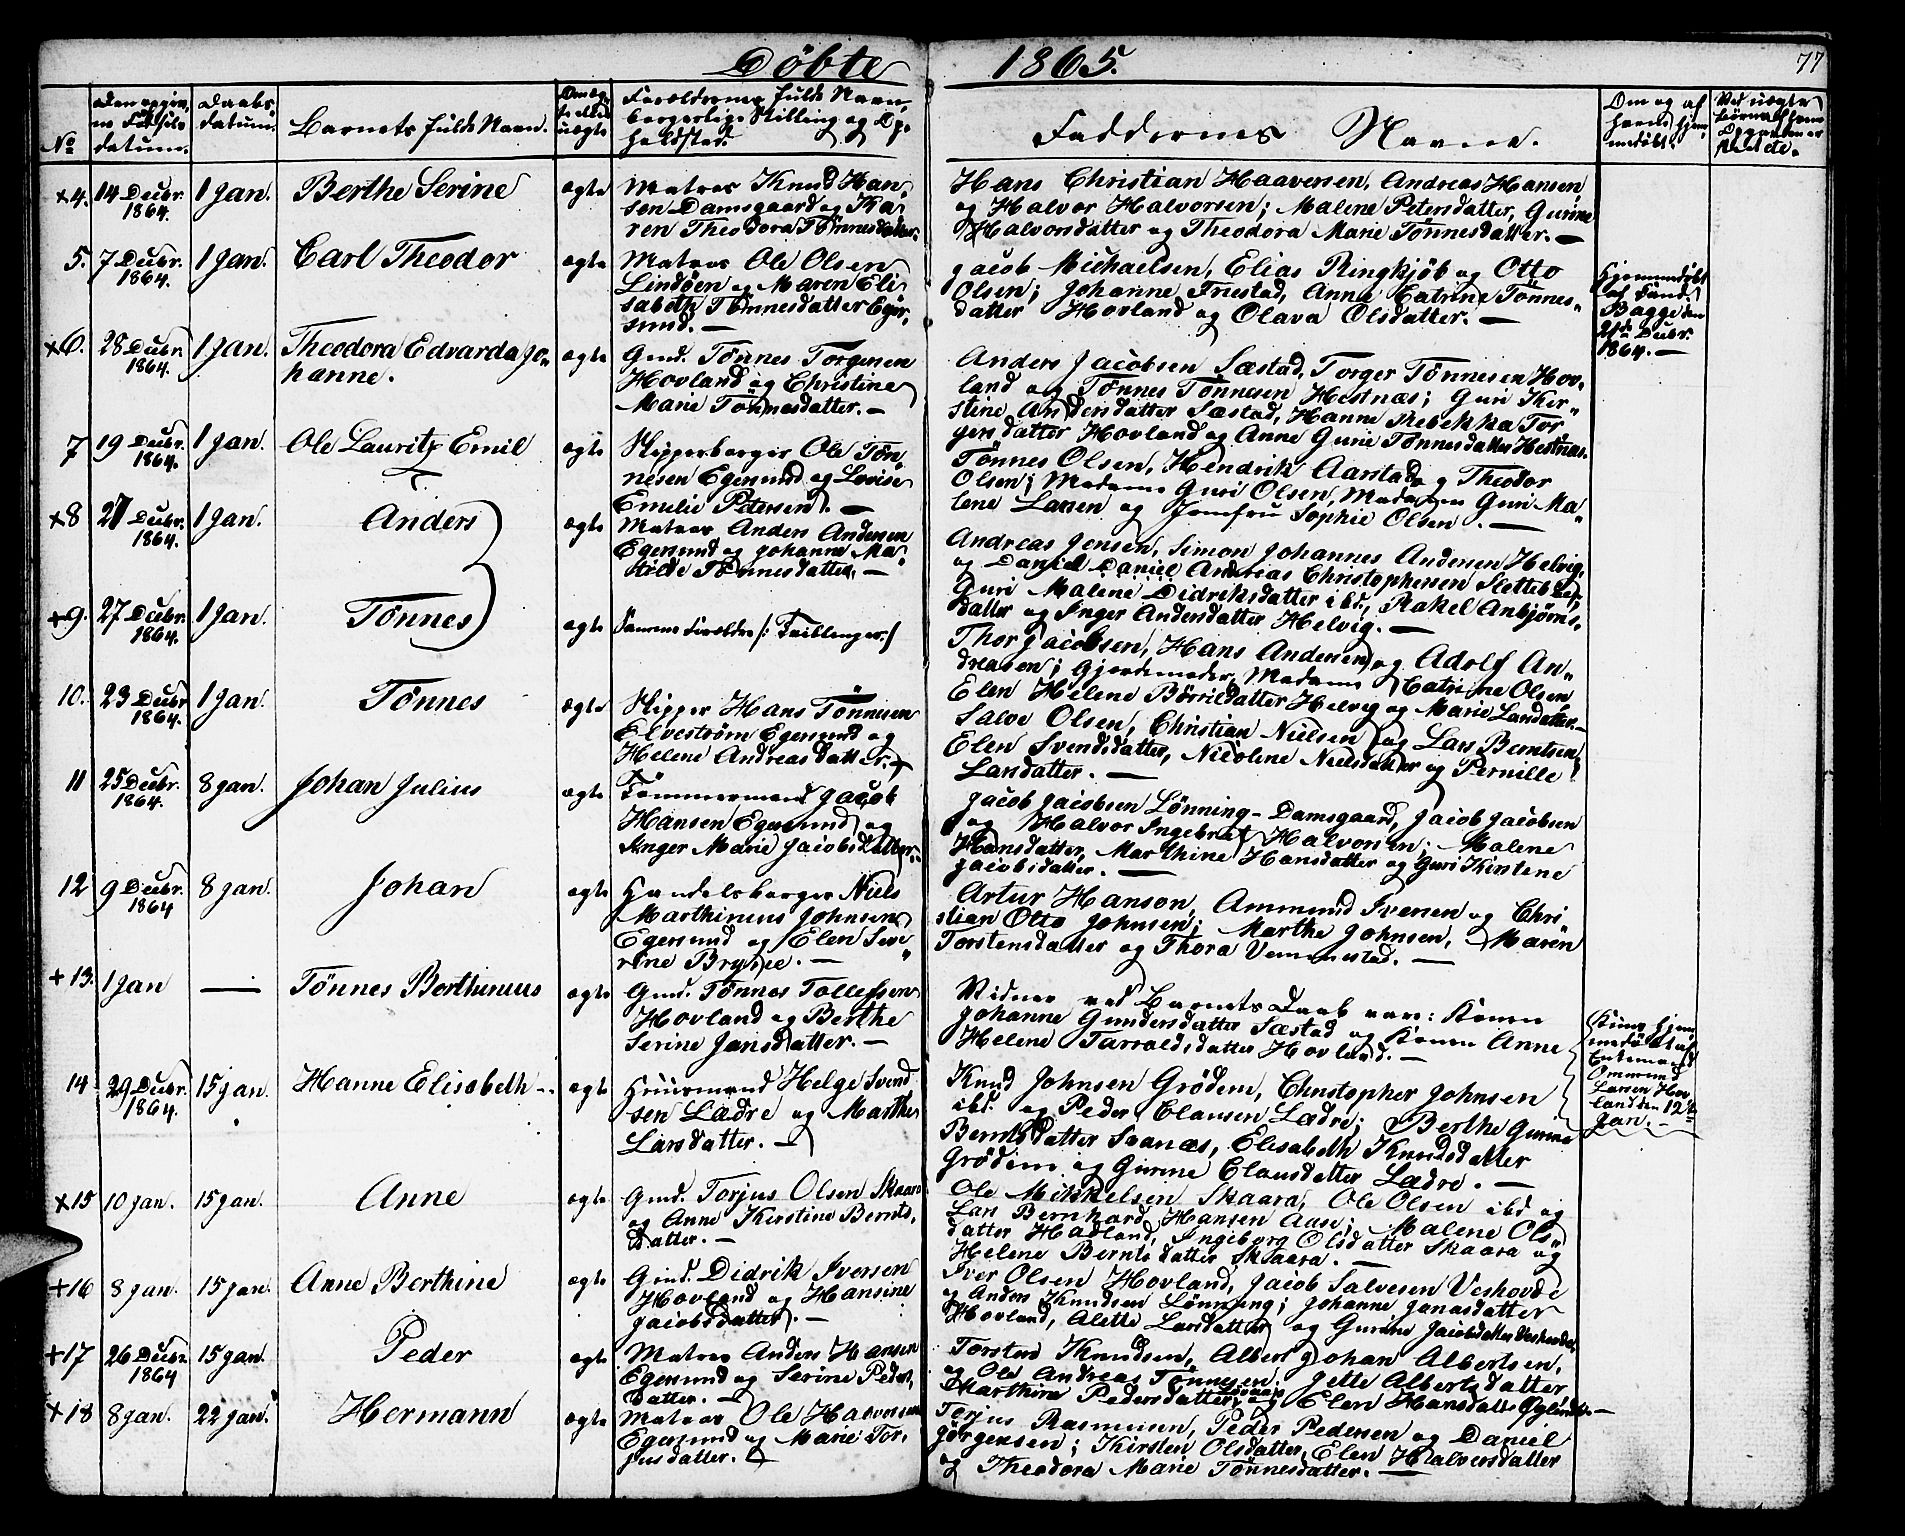 Döbte 1865.
77
No
Den opgivne Födsels datum.
Daabs datum.
Barnets fulde Navn.
Om ægte eller uægte
Forældrenes fulde Navn, borgerlige Stilling og Opholdsted.
Faddernes Navne.
Om og af hvem hjemmedöbt.
+4. 14 Decbr. 1864. 1 Jan. Berthe Serine ægte
Matros Knud Han-
sen Damsgaard og Ka-
ren Theodora Tönnesdatter.
Hans Christian Haaversen, Andreas Hansen
og Halvor Halvorsen; Malene Petersdatter, Gurine
Halvorsdatter og Theodora Marie Tönnesdatter. —
5. 7 Decbr. 1864. 1 Jan. Carl Theodor ægte
Matros Ole Olsen
Lindöen og Maren Eli-
sabeth Tönnesdatter Eger-
sund. —
Jacob Michaelsen, Elias Ringkjöb og Otto
Olsen; Johanne Friestad, Anne Catrine Tönnes-
datter Hovland og Olava Olsdatter. —
Hjemmedöbt
af Cand.
Bagge den
21de Decbr.
1864. —
+6. 28 Decbr. 1864. 1 Jan. Theodora Edvarda Jo-
hanne. ægte
Gmd. Tönnes Torgersen
Hovland og Christine
Marie Tönnesdatter. —
Anders Jacobsen Sæstad, Torger Tönnesen Hov-
land og Tönnes Tönnesen Hestnæs; Guri Ker-
stine Andersdatter Sæstad, Hanne Rebekka Tor
gersdatter Hovland og Anne Gurie Tönnesdatter Hestnæs.
7 19 Decbr. 1864. 1 Jan. Ole Lauritz Emil ægte
Skipperborger Ole Tön-
nesen Egersund og Lovise
Emilie Petersen. —
Tönnes Olsen, Hendrik Aarstad og Theodor
Olsen; Madame Guri Olsen, Madamen Guri Ma-
lene Lanen og Jomfru Sophie Olsen. —
+8 27 Decbr. 1864. 1 Jan. Anders ægte
Matros Anders Andersen
Egersund og Johanne Ma-
tilde Tönnesdatter. —
Andreas Jensen, Simon Johannes Andersen Helvig,
og Daniel Daniel Andreas Christophersen Slettebö;
Guri Malene Didriksdatter ibd., Rakel Anbjörns-
datter og Inger Andersdatter Helvig. —
+9. 27 Decbr. 1864. 1 Jan. Tönnes ægte
Samme Forældre /: Tvillinger :/
Thor Jacobsen, Hans Andersen og Adolf An-
dreasen; Gjordemoder, Madame Catrine Olsen
Elen Helene Börrildatter Helvig og Marie Larsdatter. —
10. 23 Decbr. 1864. 1 Jan. Tönnes ægte
Skipper Hans Tönnesen
Elveström Egersund og
Helene Andreasdatter. —
Salve Olsen, Christian Nielsen og Lars Berntsen;
Elen Svendsdatter, Nicoline Nielsdatter og Pernille
Larsdatter. —
11 25 Decbr. 1864. 8 Jan. Johan Julius ægte
Tömmermand Jacob
Hansen Egersund og
Inger Marie Jacobsdatter.
Jacob Jacobsen Lönning-Damsgaard, Jacob Jacobsen
og Halvor Ingebret Halvorsen; Malene
Hansdatter, Marthine Hansdatter og Guri Kirstene
Jacobsdatter. —
12 9 Decbr. 1864 8 Jan. Johan ægte
Handelsborger Niels
Marthinius Johnsen
Egersund og Elen Seve-
rine Brynie. —
Artur Hanson, Ammund Iversen og Chri-
stian Otto Johnsen; Marthe Johnsen, Maren
Torstensdatter og Thora Vemmestad. —
+13. 1 Jan — Tönnes Berthinius ægte
Gmd. Tönnes Tollefsen
Hovland og Berthe
Serine Jansdatter. —
Vidner ved Barnets Daab var: Konen
Johanne Gundersdatter Sæstad og Konen Anne
Helene Tarraldsdatter Hovland. —
Kun hjem-
medöbt af
Enkemand
Ommund
Larsen Hov-
land den 12te
Jan. —
14 29 Decbr. 1864. 15 Jan. Hanne Elisabeth - ægte
Huusmand Helge Svend
sen Lædre og Marthe
Larsdatter. —
Knud Johnsen Grödem, Christopher Johnsen
ibd. og Peder Clausen Lædre; Berthe Gurine
Berntsdatter Svanæs, Elisabeth Knudsdatter
Grödem og Gurine Clausdatter Lædre. —
+15 10 Jan. 15 Jan. Anne ægte
Gmd. Torjus Olsen Skaara
og Anne Kirstine Bernts-
datter. —
Ole Mikkelsen Skaara, Ole Olsen ibd og
Lars Bernhard Hansen Aase; Malene Ols-
datter Hadland, Ingeborg Olsdatter Skaara og
Helene Berntsdatter Skaara. —
+16 8 Jan. 15 Jan. Anne Berthine ægte
Gmd. Didrik Iversen
Hovland og Hansine
Jacobsdatter. —
Iver Olsen Hovland, Jacob Salvesen Veshovde
og Anders Knudsen Lönning; Johanne Janasdatter
Hovland, Alette Larsdatter og Gurine Jacobsdatter Veshovde.
+17 26 Decbr. 1864 15 Jan. Peder ægte
Matros Anders Hansen
Egersund og Serine Peders-
datter. —
Torsten Knudsen, Albert Johan Albertsen,
og Ole Andreas Tönnesen; Jette Albertsdatter
Marthine Pedersdatter og Elen Hansdatter —
+18 8 Jan. 22 Jan. Hermann ægte
Matros Ole Halvorsen
Egersund og Marie Tor-
jusdatter. —
Torjus Rasmusen, Peder Pedersen og Daniel
Jörgensen; Kirsten Olsdatter, Elen Halvorsdatter
og Theodora Marie Tönnesdatter. —